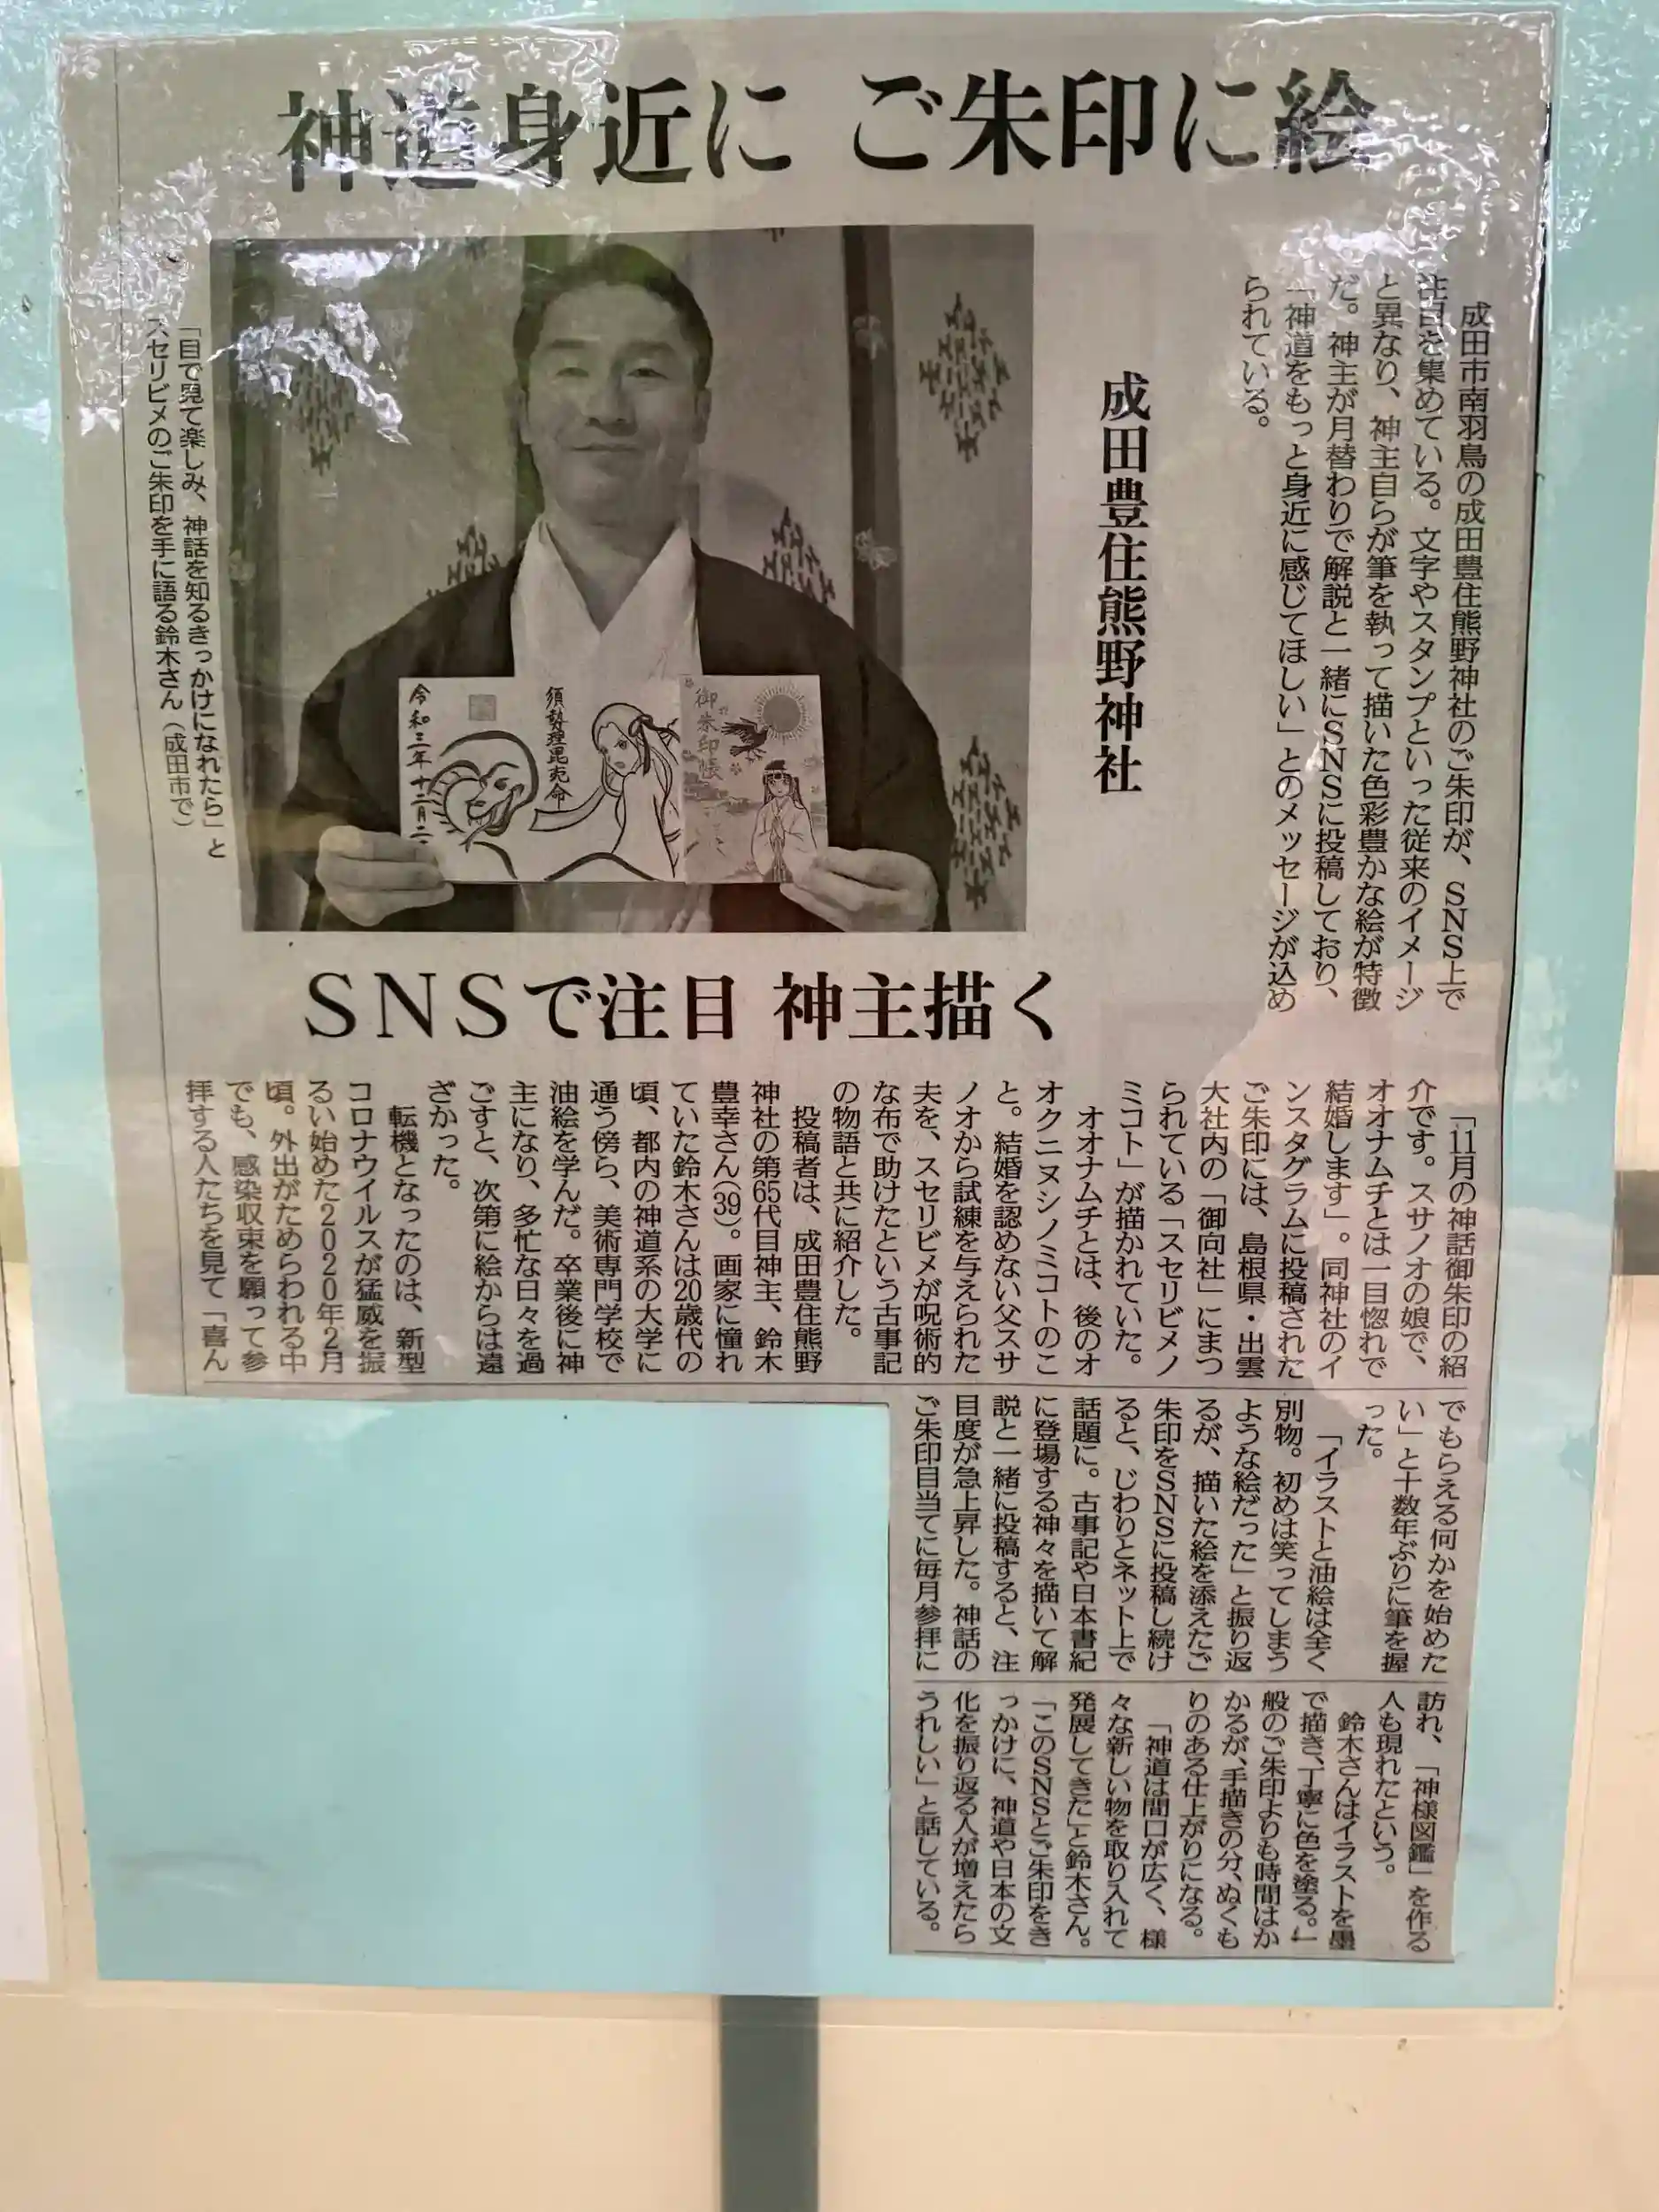 神道身近に ご朱印に絵
成田豊住熊野神社
SNSで注目 神主描く
成田市南羽鳥の成田豊住熊野神社のご朱印が、SNS上で
注目を集めている。文字やスタンプといった従来のイメージ
と異なり、神主自らが筆を執って描いた色彩豊かな絵が特徴
だ。神主が月替わりで解説と一緒にSNSに投稿しており、
「神道をもっと身近に感じてほしい」とのメッセージが込め
られている。
御朱印帳
須勢理毘売命
令和三年十二月二
「目で見て楽しみ、神話を知るきっかけになれたら」と
スセリビメのご朱印を手に語る鈴木さん（成田市で）
「11月の神話御朱印の紹
介です。スサノオの娘で、
オオナムチとは一目惚れで
結婚します」。同神社のイ
ンスタグラムに投稿された
ご朱印には、島根県・出雲
大社内の「御向社」にまつ
られている「スセリビメノ
ミコト」が描かれていた。
オオナムチとは、後のオ
オクニヌシノミコトのこ
と。結婚を認めない父スサ
ノオから試練を与えられた
夫を、スセリビメが呪術的
な布で助けたという古事記
の物語と共に紹介した。
投稿者は、成田豊住熊野
神社の第65代目神主、鈴木
豊幸さん(39)。画家に憧れ
ていた鈴木さんは20歳代の
頃、都内の神道系の大学に
通う傍ら、美術専門学校で
油絵を学んだ。卒業後に神
主になり、多忙な日々を過
ごすと、次第に絵からは遠
ざかった。
転機となったのは、新型
コロナウイルスが猛威を振
るい始めた2020年2月
頃。外出がためらわれる中
でも、感染収束を願って参
拝する人たちを見て「喜ん
でもらえる何かを始めた
い」と十数年ぶりに筆を握
った。
「イラストと油絵は全く
別物。初めは笑ってしまう
ような絵だった」と振り返
るが、描いた絵を添えたご
朱印をSNSに投稿し続け
ると、じわりとネット上で
話題に。古事記や日本書紀
に登場する神々を描いて解
説と一緒に投稿すると、注
目度が急上昇した。神話の
ご朱印目当てに毎月参拝に
訪れ、「神様図鑑」を作る
人も現れたという。
鈴木さんはイラストを墨
で描き、丁寧に色を塗る。一
般のご朱印よりも時間はか
かるが、手描きの分、ぬくも
りのある仕上がりになる。
「神道は間口が広く、様
々な新しい物を取り入れて
発展してきた」と鈴木さん。
「このSNSとご朱印をき
っかけに、神道や日本の文
化を振り返る人が増えたら
うれしい」と話している。